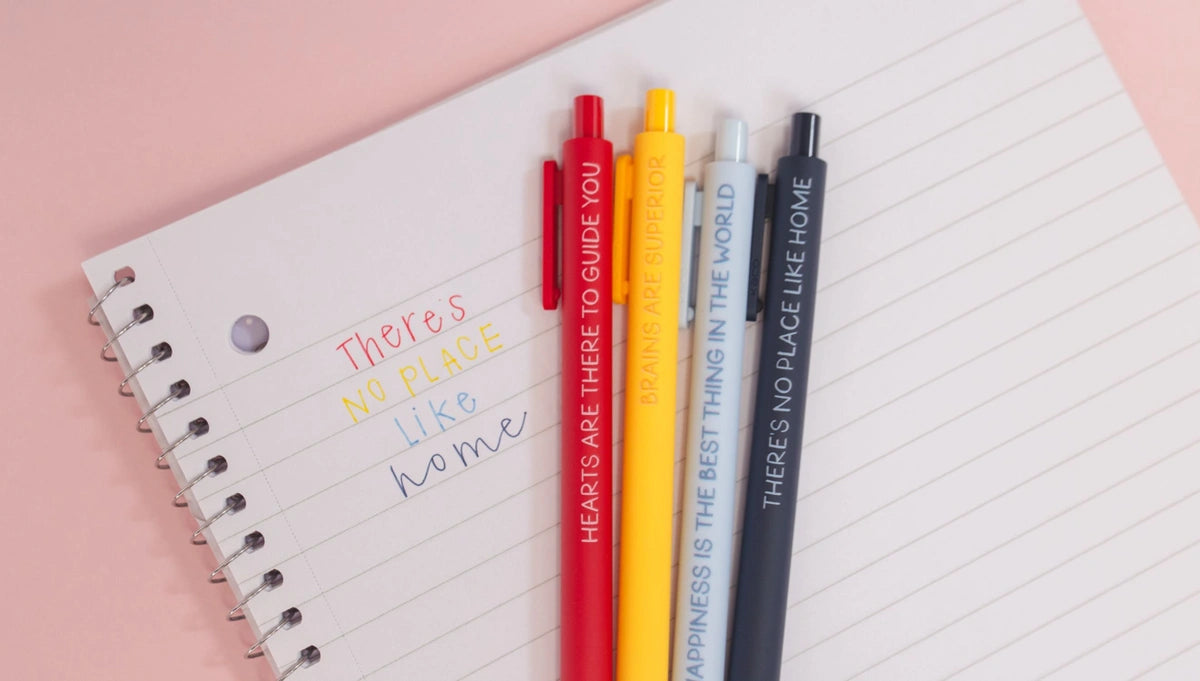 There's
NO PLACE
Like
home
HEARTS ARE THERE TO GUIDE YOU
BRAINS ARE SUPERIOR
APPINESS IS THE BEST THING IN THE WORLD
THERE'S NO PLACE LIKE HOME